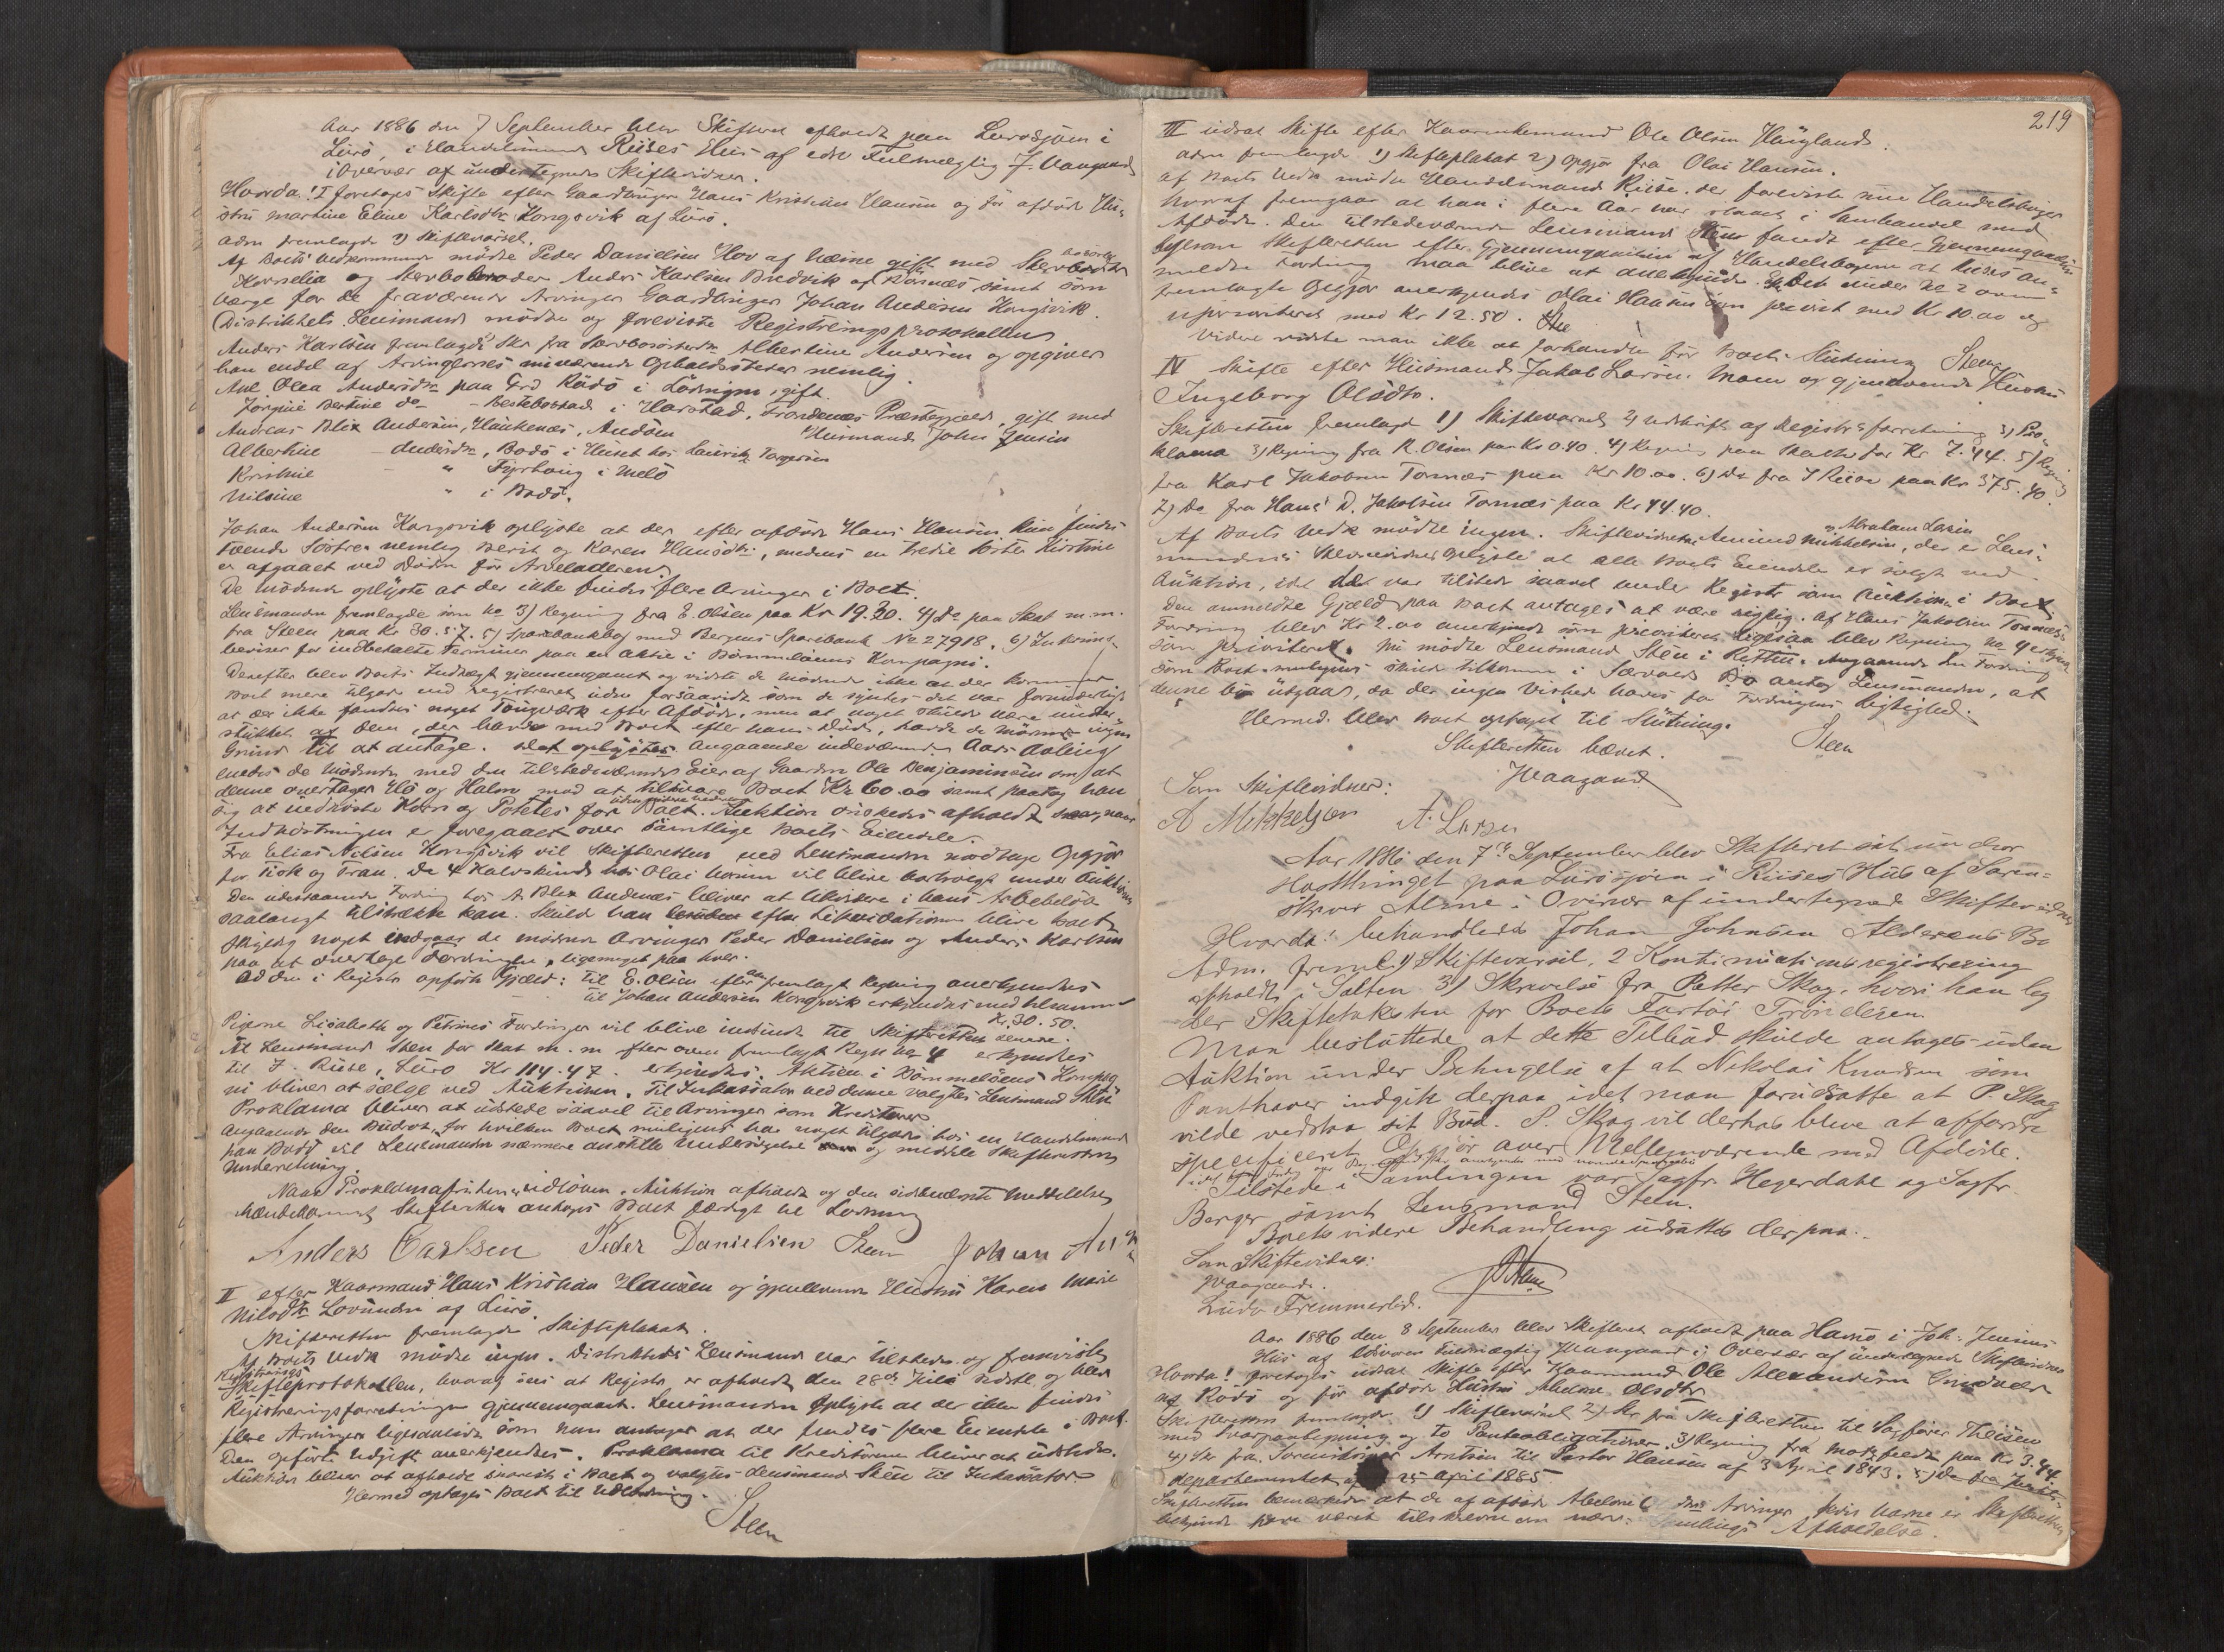 Aar 1886 den 7 September blev Skifteret afholdt paa Lurøsjøen i
Lurö, i Handelsmand Riises Hus af edsv Fulmægtig J. Vaagaand
i Overvær af undertegnede Skiftevidner.
Hvorda! I foretoges Skifte efter Gaardbruger Hans Kristian Hansen og før afdøde Hu-
stru Martine Eline Karlsdtr Kongsvik af Lurö.
Adm fremlagde 1) Skiftevarsel.
Af Boets Vedkommende mødte Peder Danielsen Hov af Næsne gift med Stervbosöster
Kornelia og Stervbobroder Anders Karlsen Budvik af Dönnæs samt som
Værge for de fraværende Arvinger Gaardbruger Johan Andersen Kongsvik.
Distriktets Lensmand mødte og foreviste Registreringsprotokollen
Anders Karlsen fremlagde Skr fra Særboosösterdtr Albertine Andersen og opgiver
han endel af Arvingernes nuværende Opholdssteder nemlig.
Ane Olea Andersdtr paa Grd Rödö i Lödingen, gift.
Jörgine Bertine do - Bestebostad i Harstad, Trondenæs Præstegjeld, gift med
Andreas Blix Andersen, Haukenæs, Andöen Husmand John Jensen
Albertine - Andersdtr, Bodö i Huset hos Laurits Torgersen
Kristine - " Fyrhaug i Melö
Nilsine " i Bodö.
Johan Andersen Kongsvik oplyste at der efter afdøde Hans Hansen kun findes
tvende Söstre nemlig Berit og Karen Hansdtr, medens en tredie Söster Kirstine
er afgaaet ved Døden før Arveladeren.
De mødende oplyste at der ikke findes flere Arvinger i Boet.
Lensmanden fremlagde som No 3) Regning fra E. Olsen paa Kr 19.30. 4) Do paa Skat m.m.
fra Steen paa Kr 30.57. 5) Sparebankbog med Bergens Sparebank No 27918. 6) Interims-
beviser for indbetalte Terminer paa en Aktie i Dömmelöens Kompagni.
Derefter blev Boets Indtægt gjennemgaaet og vidste de mødende ikke at der kommer
Boet mere tilgode end registreret uden forsaavidt som de syntes det var forunderligt
at der ikke fandtes noget Tougværk efter Afdøde, men at noget skulde være under-
stukket af dem, der havde med Boet efter hans Død, havde de mødende ingen
Grund til at antage. Angaaende indeværende Aars Avling
enedes de mødende med den tilstedeværende Eier af Gaarden Ole Benjaminsen om at
denne overtager Hö og Halm mod at tilsvare Boet Kr 60.00 samt paatog han
sig at indhöste Korn og Potetes for Boet. Auktion önskedes afholdt snarest naar
Indhöstningen er foregaaet over samtlige Boets Eiendele.
Fra Elias Nilsen Kongsvik vil Skifteretten ved Lensmanden modtage Opgjør
for Fisk og Tran. De 4 Kalveskind hos Olai Larsen vil blive bortsolgt under Auktionen
Den udestaaende Fordring hos A Blix Andenæs bliver at likvidere i hans Arvebeløb
saalangt tilstrække kan. Skulde han efter Likvidationen blive Boet
skyldig noget indgaar de mødende Arvinger Peder Danielsen og Anders Karlsen
paa at overtage Fordringen, ligemeget paa hver.
Ad den i Registr opførte Gjæld: til E. Olsen efter fremlagt Regning anerkjendes
til Johan Andersen Kongsvik erkjendes med tilsammen
Kr. 30.50.
Pigerne Lisabeth og Petrines Fordringer vil blive indsendt til Skifteretten senere.
Til Lensmand Steen for Skat m.m efter oven fremlagt Regn No 4 erkjendes
til J. Riise, Lurö Kr 114.47. erkjendes. Aktien i Dömmelöens Kompag
ni bliver at sælge ved Auktionen. Til Inkassator ved denne valgtes Lensmand Steen
Proklama bliver at udstede saavel til Arvinger som Kreditorer
Angaaende den Budrot, for hvilken Boet muligens har noget tilgode hos en Handelsmand
paa Bodö vil Lensmanden nærmere anstille Undersøgelse og meddele Skifteretten
Underretning.
Naar Proklamafristen er udløben, Auktion afholdt og den sidstnævnte Meddelelse
Skifteretten antages Boet færdigt til Lodning
Anders Carlsen Peder Danielsen Steen Johan An
II efter Kaarmand Hans Kristian Hansen og gjenlevende Hustru Karen Marie
Nilsdtr Lovunden af Lurö.
Skifteretten fremlagde Skifteplakat.
Af Boets Vedk mødte ingen. Distriktets Lensmand var tilstede og fremviste
Registrerings
Skifteprotokollen, hvoraf sees at Registr er afholdt den 28de Juli sidstl. og blev
Registreringsforretningen gjennemgaaet. Lensmanden oplyste at der ikke findes
flere Arvinger ligesaalidt som han antager at der findes flere Eiendele i Boet.
Den opførte Udgift anerkjendtes. Proklama til Kreditorerne bliver at udstede.
Auktion bliver at afholde snarest i Boet og valgtes Lensmand Steen til Inkassator
Hermed optages Boet til Udlodning.
Steen
219
III udsat Skifte efter Kaarenkemand Ole Olsen Haugland.
Adm fremlagde 1) Skifteplakat 2) Opgjør fra Olai Hansen.
Af Boets Vedk mødte Handelsmand Riise, der foreviste sine Handelsbøger
hvoraf fremgaar at han i flere Aar har staaet i Samhandel med
Afdøde. Den tilstedeværende Lensmand Steen fandt efter Gjennemgaaelse
ligesom Skifteretten efter Gjennemgaaelsen af Handelsbøgerne at Riises an-
meldte Fordring maa blive at anerkjende. Det under No 2 oven
fremlagte Opgjør anerkjendes Olai Hansen som priorit med Kr 10.00 og
uprioriteret med Kr 12.50.
Videre vidste man ikke at forhandle før Boets Slutning Steen
IV Skifte efter Husmand Jakob Larsen Moen og gjenlevende Hustru
Ingeborg Olsdtr.
Skifteretten fremlagde 1) Skiftevarsel 2) Udskrift af Registrsforretning 3) Pro-
klama 3) Regning fra R. Olsen paa Kr 0.40. 4) Regning paa Skatter for Kr 7.44. 5) Regning
fra Karl Jakobsen Tonnæs paa Kr 10.00. 6) Do fra J Riise paa Kr 375.40
7) Do fra Hans D. Jakobsen Tonnæs paa Kr 44.40.
Af Boets Vedk mødte ingen. Skiftevidnerne Amund Mikkelsen, og Abraham Larsen der er Lens-
mandens Stevnevidner oplyste at alle Boets Eiendele er solgt ved
Auktion, idet de var tilstede saavel under Registr som Auktion i Boet
Den anmeldte Gjæld paa Boet antages at være rigtig. Af Hans Jakobsen Tonnæs
Fordring blev Kr 2.00 anerkjendt som prioriteret ligesaa blev Regning No 4 erkjendt
som prioriteret. Nu mødte Lensmand Steen i Retten. Angaaende den Fordring
som Boet muligens skulde tilkomme i Særvaas Bo antog Lensmanden, at
denne bør udgaar, da der ingen Vished haves for Fordringens Rigtighed.
Hermed blev Boet optaget til Slutning.
Skifteretten hævet. Steen
JVaagaand
Som Skiftevidner:
A Mikkelsen A. Larsen
Aar 1886 den 7de September blev Skifteret sat under
Høstthinget paa Lurösjøen i Riises Hus af Soren-
skriver Alme i Overvær af undertegnede Skiftevidner
Hvorda! behandledes Johan Johnsen Alderens Bo
Adm. freml. 1) Skiftevarsel. 2 Kontinuationsregistrering
afholdt i Salten 3) Skrivelse fra Petter Skog, hvori han by
der Skiftetaksten for Boets Fartöi Trönderen.
Man besluttede at dette Tilbud skulde antages uden
Auktion under Betingelse af at Nikolai Knudsen som
Panthaver indgik derpaa idet man forudsatte at P. Skog
vilde vedstaa sit Bud. P. Skog vil derhos blive at affordre
specificeret Opgjør over Mellemværende med Afdøde.
Tilstede i Samlingen var Sagfr. Hegerdahl og Sagfr.
Berger samt Lensmand Steen.
Boets videre Behandling udsattes derpaa.
Som Skiftevidner:
JVaagaand. Alme
Ludv Fremmerlid.
Aar 1886 den 8 September blev Skifteret afholdt paa Hamö i Joh. Jensens
Hus af Edsvoren Fuldmægtig JVaagaand i Overvær af undertegnede Skiftevidner
Hvorda! foretoges udsat Skifte efter Kaarmand Ole Alexandersen Gundvær
af Rödö og før afdøde Hustru Abelone Olsdtr
Skifteretten fremlagde 1) Skiftevarsel 2) Skr fra Skifteretten til Sagfører Theisen
med Svarpaategning og to Panteobligationer. 3) Regning fra Motzfeldt paa Kr 3.44
4) Skr fra Sorenskriver Arntzen til Pastor Hansen af 3 April 1843. 5) Do fra Justits-
departementet af 25 April 1885
Skifteretten bemærkede at de af afdøde Abelone Arvinger hvis Navne er Skifteretten
bekjendt have været tilskrevne om nærv. Samlings Afholdelse.